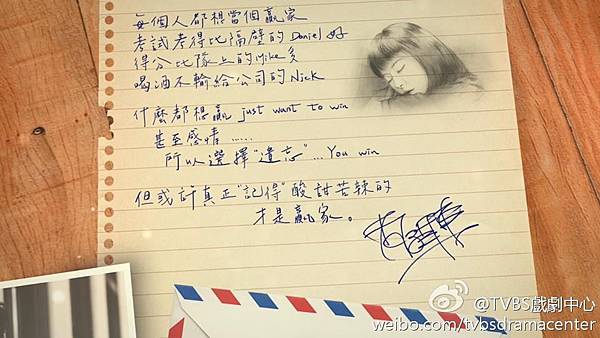 每個人都想當個贏家
考試考得比隔壁的Daniel好
得分比隊上的Mike多
喝酒不輸給公司的Nick
什麼都想贏 just want to win
甚至感情......
所以選擇"遺忘"...You win
但或許真正"記得"酸甜苦辣的
才是贏家。
@TVBS戲劇中心
weibo.com/tvbsdramacenter